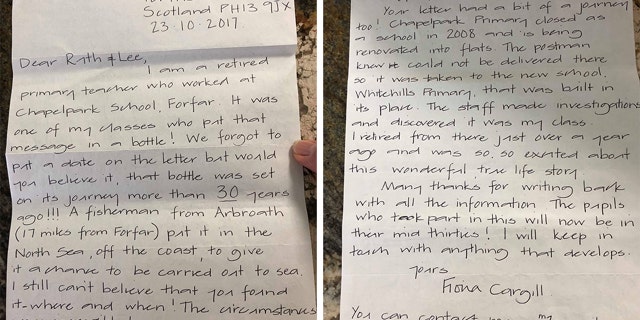 Scotland PH13 9JX
23.10.2017.
Dear Ruth & Lee,
I am a retired
primary teacher who worked at
Chapelpark School, Forfar. It was
one of my classes who put that
message in a bottle! We forgot to
put a date on the letter but would
you believe it, that bottle was set
on its journey more than 30 years
ago!!! A fisherman from Arbroath
(17 miles from Forfar) put it in the
North Sea, off the coast, to give
it a chance to be carried out to sea.
I still can't believe that you found
it-where and when! The circumstances
Your letter had a bit of a journey
too! Chapelpark Primary closed as
a school in 2008 and is being
renovated into flats. The postman
knew it could not be delivered there
so it was taken to the new school,
Whitehills Primary, that was built in
its place. The staff made investigations
and discovered it was my class.
I retired from there just over a year
ago and was so, so excited about
this wonderful true life story.
Many thanks for writing back
with all the information. The pupils
who took part in this will now be in
their mid thirties! I will keep in
touch with anything that develops.
Yours
Fiona Cargill.
You can contact my